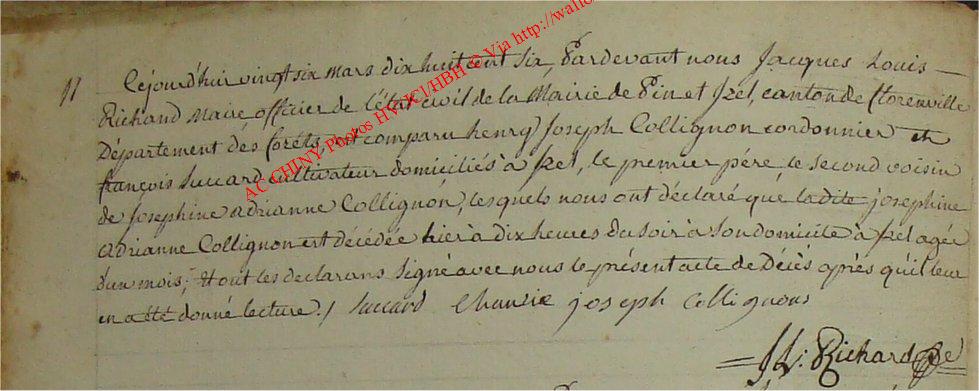 11
Cejourd'huir vingt six mars dix huit cent six, Pardevant nous Jacques Louis
Richard Maire officier de l'état civil de la Mairie de Pin et Izel, canton de florenville
Département des forêts, est comparu henry Joseph Collignon cordonnier et
françois Succard cultivateur domiciliés à Izel, le premier pére, le second voisin
de Josephine adrianne Collignon, lesquels nous ont déclaré que la dite josephine
adrianne Collignon est décédée hier à dix heures du soir à son domicile à Izel agée
d'un mois; et ont les declarans signé avec nous le présent acte de Décès après qu'il leur
en a été donné lecture./ Succard joseph Collignons
JL: Richard
AC CHINY-Photos HW/CI/HBH © Via http://wallo